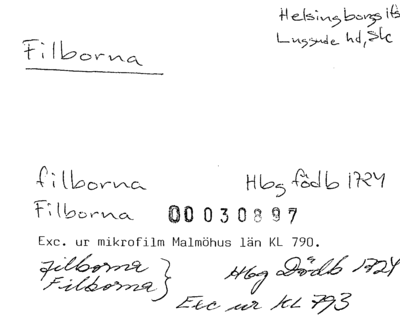 Helsingborgs ifs
Luggude hd, Skc
Filborna
filborna Hbg födb 1724
Filborna 00030897
Exc. ur mikrofilm Malmöhus län KL 790.
filborna } Hbg Dödb 1724
Filborna }
Exc ur KL 793